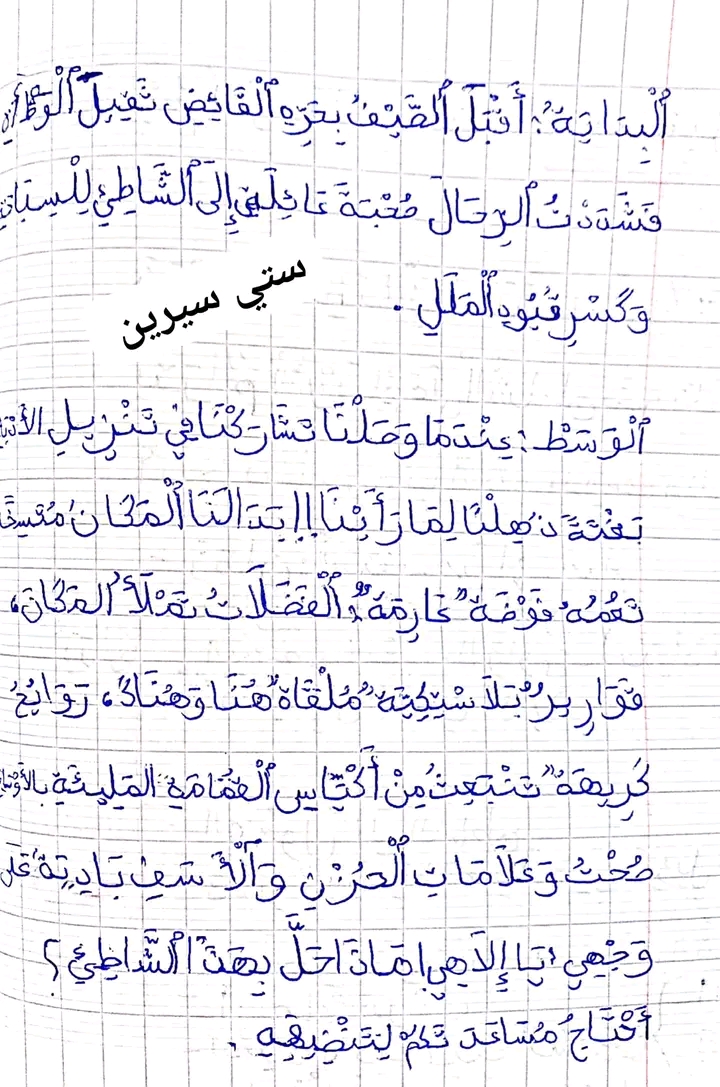 اَلْبِدَايَةُ: أَقْبَلَ الصَّيْفُ بِحَرِّهِ الْقَائِضِ ثَقِيلَ الْوَطْأَةِ
فَشَدَدْتُ الرِّحَالَ صُحْبَةَ عَائِلَتِي إِلَى الشَّاطِئِ لِلْسِبَاحَةِ
وَكَسْرِ قُيُودِ الْمَلَلِ .
ستي سيرين
اَلْوَسَطْ: عِنْدَمَا وَصَلْنَا تَشَارَكْنَا فِي تَنْزِيلِ الأَمْتِعَةِ
بَغْتَةً ذُهِلْنَا لِمَا رَأَيْنَا!! بَدَا لَنَا الْمَكَانُ مُتَّسِخًا
تَعُمُّهُ فَوْضَةٌ عَارِمَةٌ: الْفَضَلَاتُ تَمْلَأُ المَكَانَ،
قَوَارِيرٌ بَلَاسْتِيكِيَّةٌ مُلْقَاةٌ هُنَا وَهُنَاكَ، رَوَائِحُ
كَرِيهَةٌ تَنْبَعِثُ مِنْ أَكْيَاسِ الْقُمَامَةِ المَلِيئَةِ بالأَوْسَاخِ
صُحْتُ وَعَلَامَاتِ الْحُزْنِ وَالْأَسَفِ بَادِيَةٌ عَلَى
وَجْهِي: يَا إِلَاهِي! مَاذَا حَلَّ بِهَذَا الشَّاطِئِ؟
أَحْتَاجُ مُسَاعَدَتَكُمْ لِتَنْضِيفِهِ .